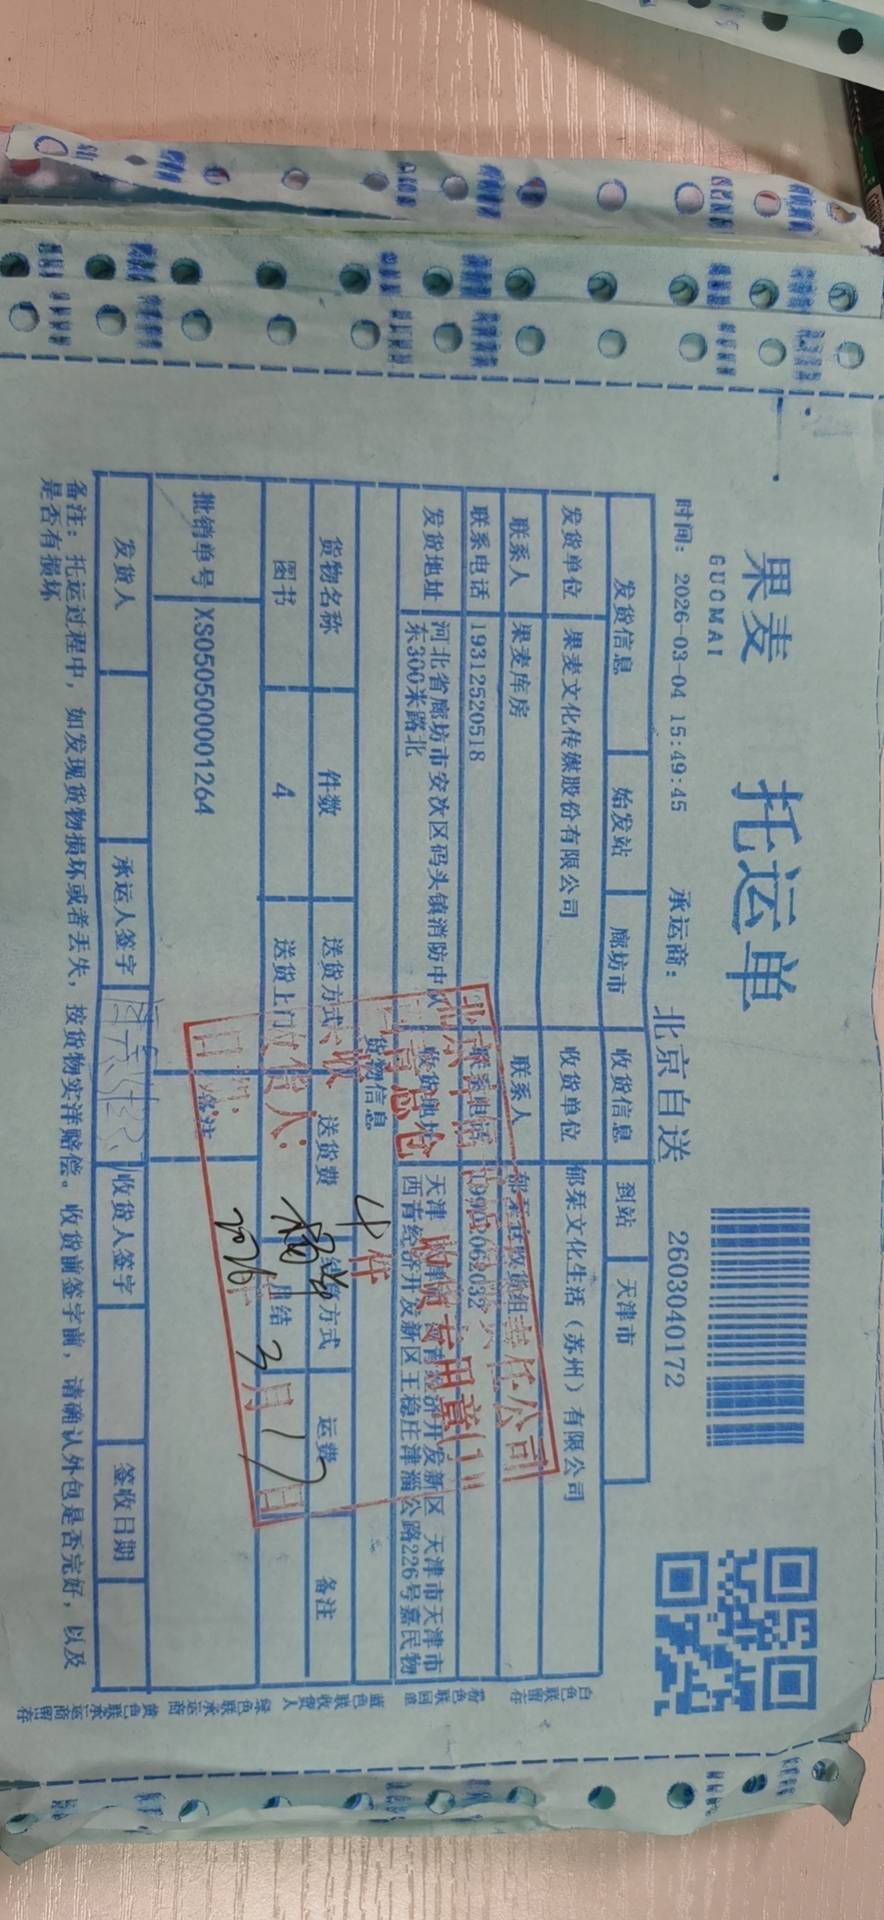 果麦
GUOMAI
托运单
时间: 2026-03-04 15:49:45 承运商: 北京自送 2603040172
发货信息 始发站 廊坊市 收货信息 到站 天津市
发货单位 果麦文化传媒股份有限公司 收货单位 郁栞文化生活（苏州）有限公司
联系人 果麦库房 联系人
联系电话 19312520518 联系电话
发货地址 河北省廊坊市安次区码头镇消防中队东300米路北 收货地址 天津 经济开发新区 天津市天津市西青经济开发新区王稳庄津淄公路226号嘉民物
货物信息
货物名称 件数 送货方式 送货费 方式 运费 备注
图书 4 送货上门 月结
批销单号 XS050500001264 备注
发货人 承运人签字 收货人签字 签收日期
备注: 托运过程中，如发现货物损坏或者丢失，按货物实洋赔偿。收货前签字前，请确认外包是否完好，以及
是否有损坏
白色联留存 粉色联回单 蓝色联收货人 绿色联承运商 黄色联承运商留存
责任公司
收货专用章(1)
收货人:
4件
2026年3月17日